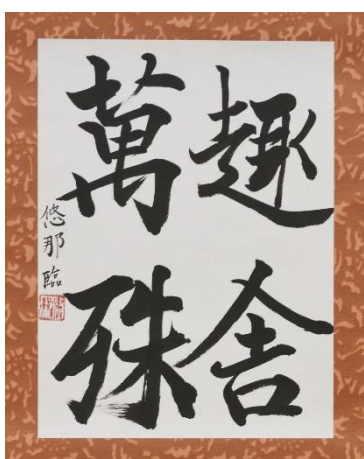 趣舎
萬殊
悠那臨